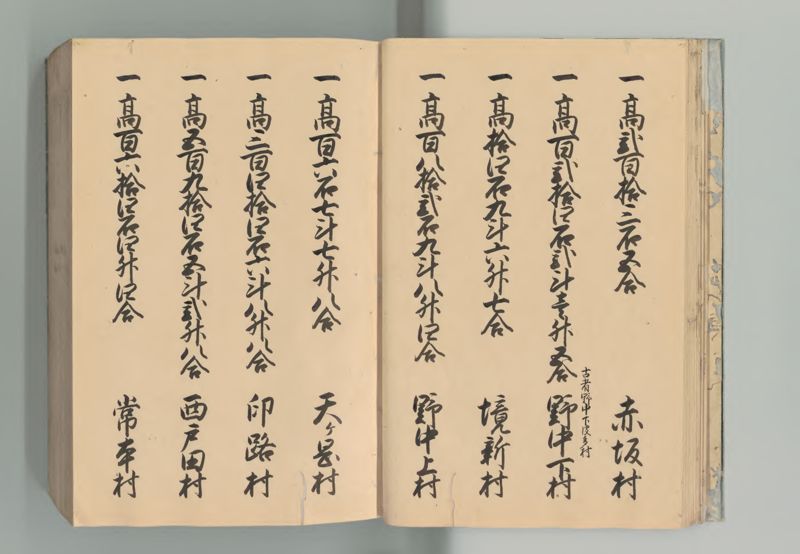 一髙弐百拾三石五合 赤坂村
一髙百弐拾四石弐斗壱升五合 野中下村
古者野中下村
一髙拾四石九斗六升七合 境新村
一髙百八拾弐石九斗八升四合 野中上村
一髙百六石七斗七升八合 天ヶ岡村
一髙三百四拾四石六斗八升八合 印路村
一髙五百九拾四石五斗弐升八合 西戸田村
一髙百六拾四石四升四合 常本村